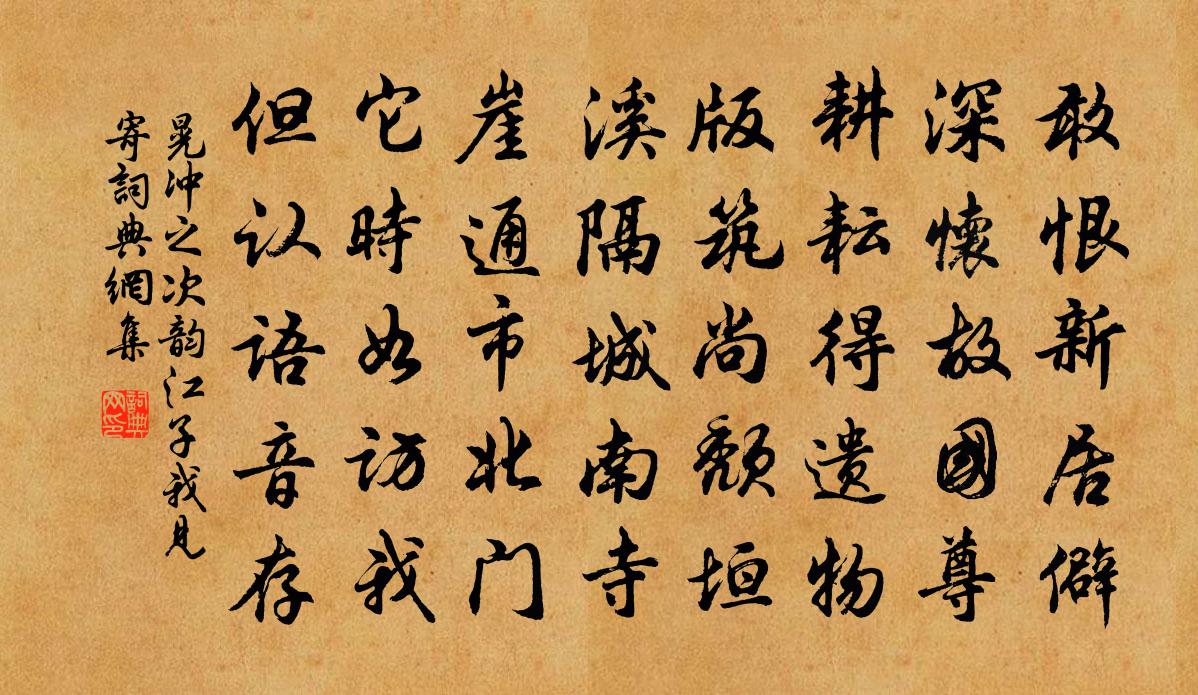 敢恨新居僻
深懷故國尊
耕耘得遗物
版筑尚颓垣
溪隔城南寺
崖通市北门
它時如访我
但认語音存
晁冲之次韵江子我見
寄詞典網集
詞典网印